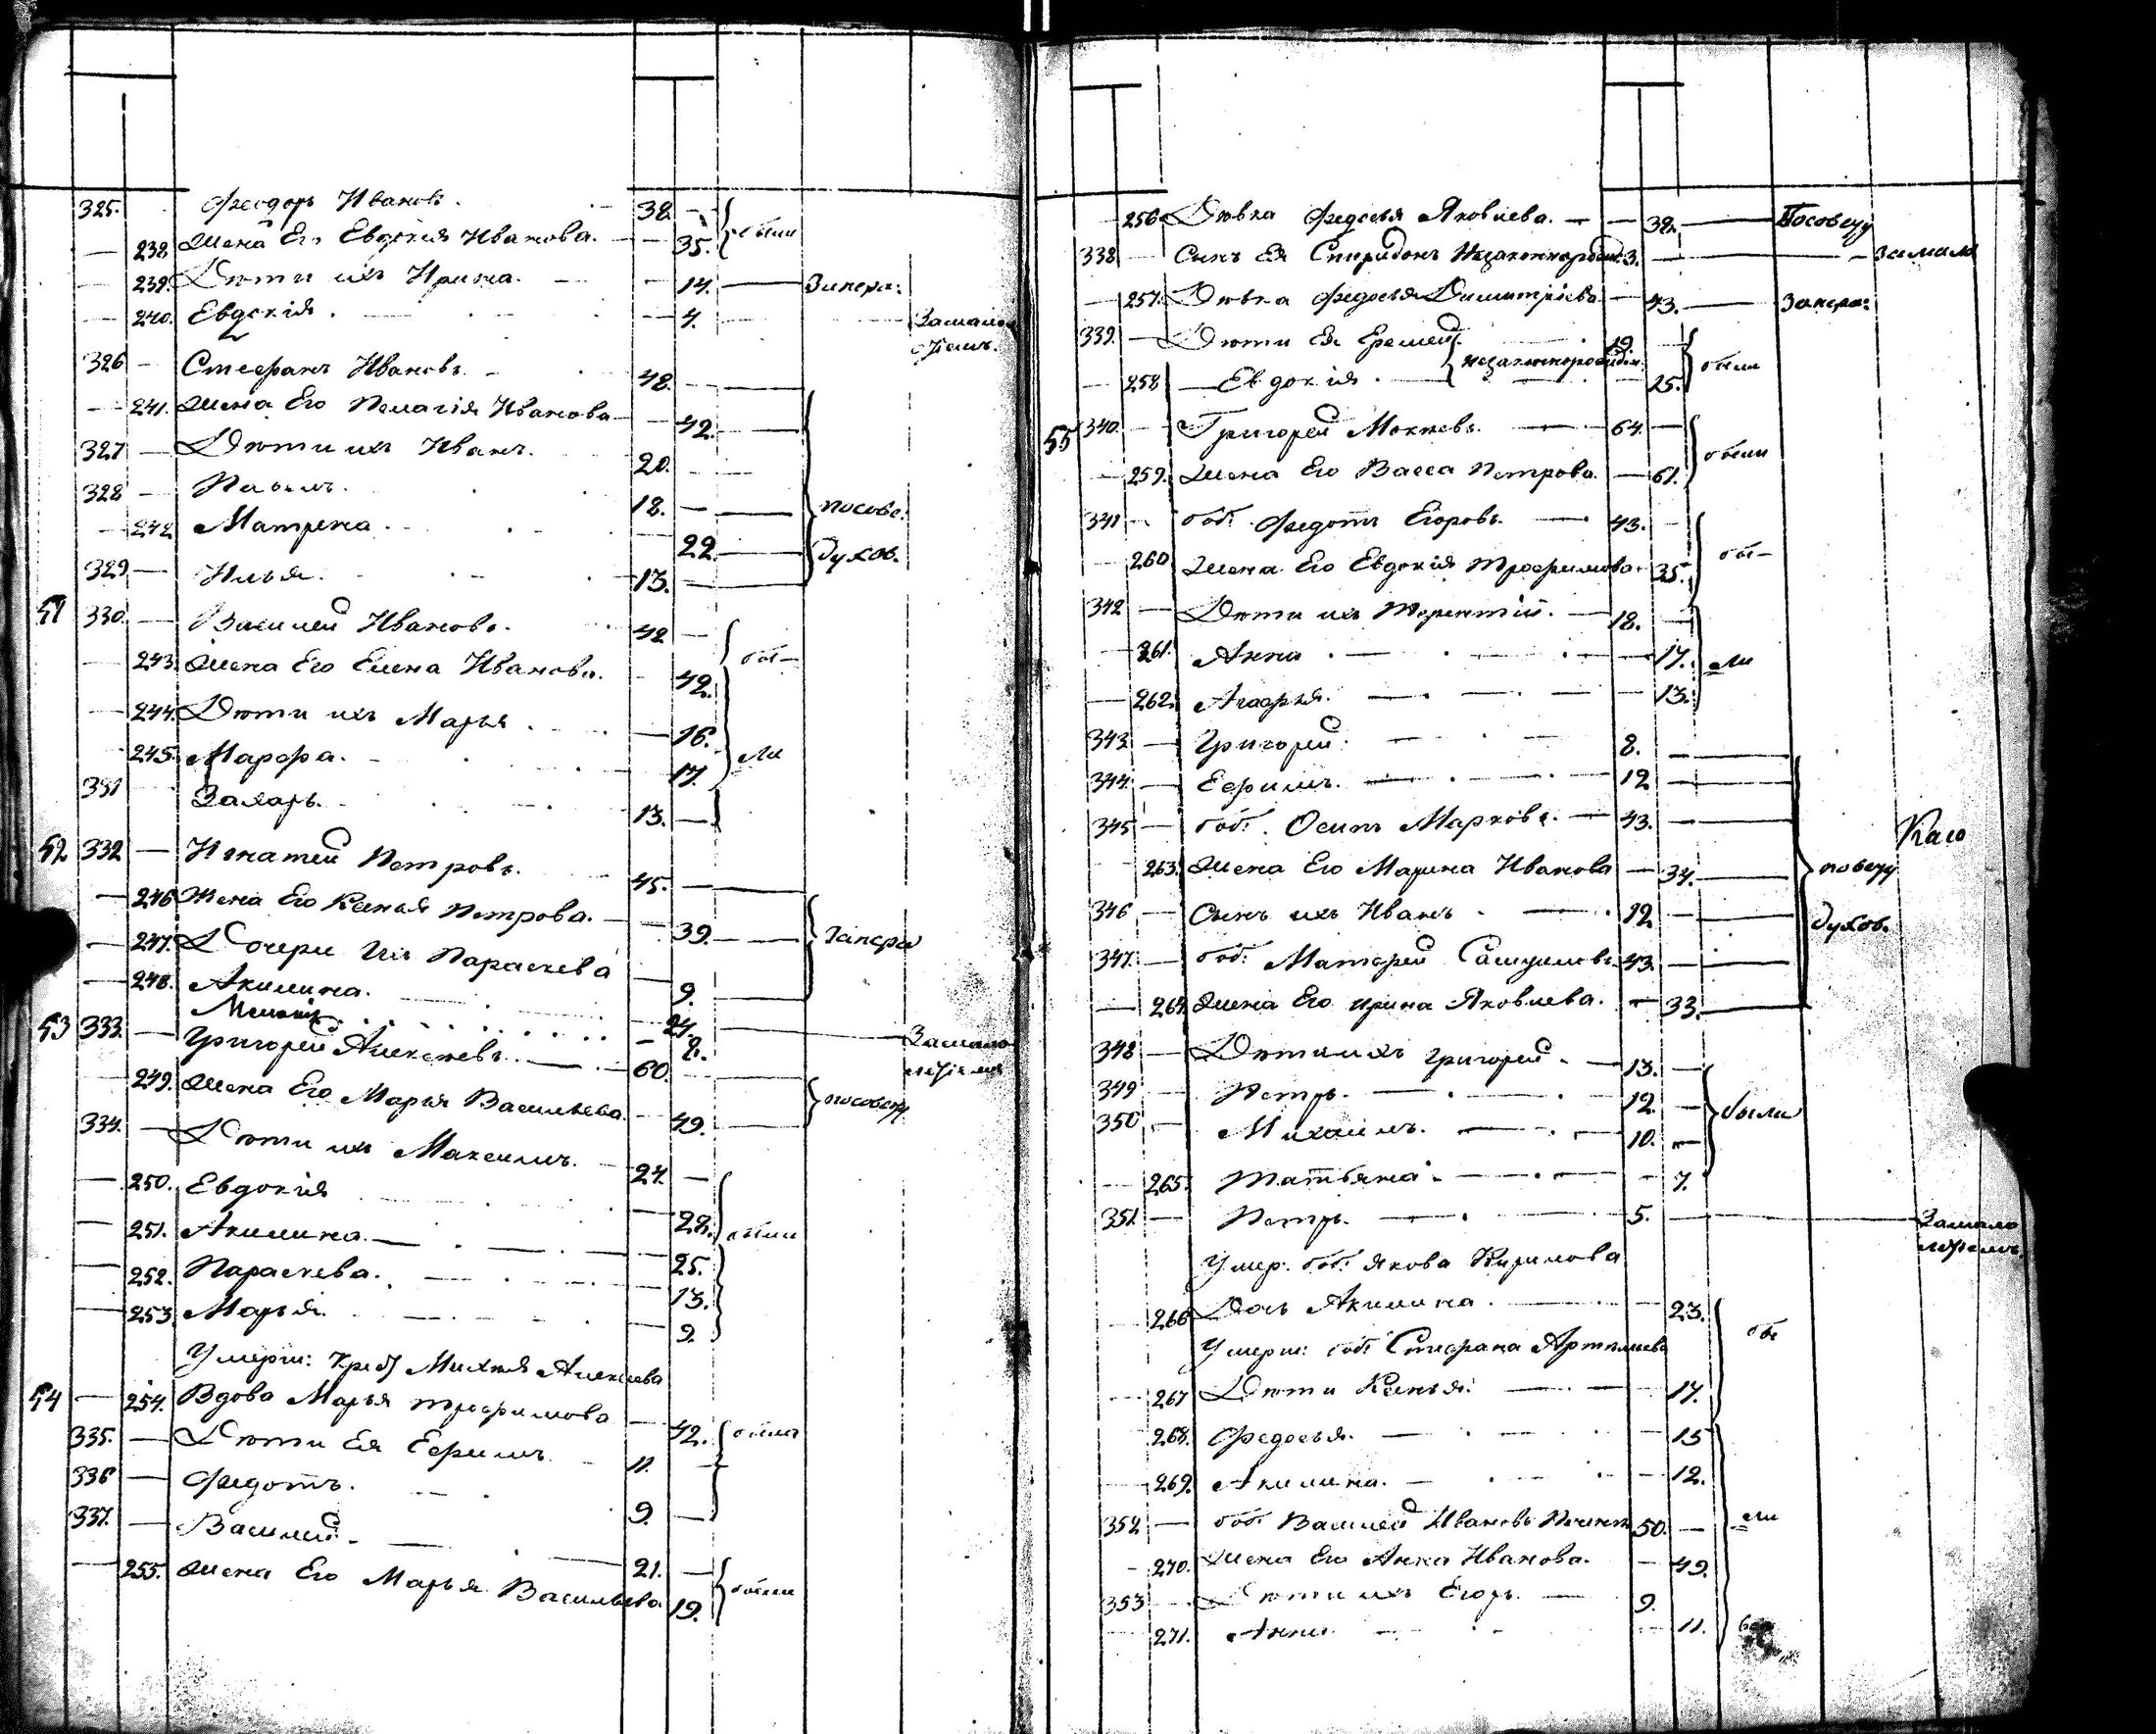 325. Феодоръ Ивановъ. 38. были
238 Жена Его Евдокія Иванова. 35.
239. Дѣти ихъ Ирина. 14. Занера:
240. Евдокія. 4. Замало
лѣтст.
326 Стефанъ Ивановъ. 48.
241. Жена Его Пелагія Иванова 42.
327 Дѣти ихъ Иванъ. 20.
328 Павелъ. 18. посовѣ.
242 Матрена. 22 духов.
329 Илья. 13.
51 330. Василей Ивановъ. 42 бы-
243. Жена Его Елена Иванова. 42.
244. Дѣти ихъ Марья. 16. ли
245. Марфа. 17.
331 Захаръ. 13.
52 332 Игнатей Петровъ. 45.
246 Жена Его Ксенья Петрова. 39. Занера
247. Дочери Ихъ Параскева 9.
248. Акилина. 24.
2. Замало
53 333 Григорей Алексѣевъ. 60.
249. Жена Его Марья Васильева. 49. посовѣту
334. Дѣти ихъ Максимъ. 24.
250. Евдокия 28. были
251. Акилина. 25.
252. Параскева. 13.
253 Марья. 9.
Умерш: Крес Михея Алексѣева
54 254. Вдова Марья Трофимова 42. были
335. Дѣти Ея Ефимъ 11.
336 Федотъ. 9.
337. Василей. 21.
255. Жена Его Марья Васильева 19. были
256 Дѣвка Федосья Яковлева. 38. Посовѣту
338 Сынъ Ея Спиридонъ Незаконнорожд. 3. Замало
257. Дѣвка Федосья Димитріева 43. Занера:
339. Дѣти Ея Еремей. 19 были
незаконнорожден.
258 Евдокія. 25.
55 340. Григорей Мокѣевъ. 64. были
259. Жена Его Васса Петрова. 61.
341 боб: Федотъ Егоровъ. 43. бы-
260 Жена Его Евдокія Трофимова. 35.
342 Дѣти ихъ Терентій. 18.
261. Анна 17. ли
262. Агафья. 13.
343 Григорей. 8.
344. Ефимъ. 12
345 боб: Осипъ Марковъ. 43.
263. Жена Его Марина Иванова 34. повѣту
346 Сынъ ихъ Иванъ 12 духов.
347. боб: Матфей Самуиловъ 43.
264 Жена Его Ирина Яковлева. 33.
348 Дѣти ихъ Григорей 13.
349 Петръ. 12. были
350 Михаилъ. 10.
265. Татьяна. 7.
351. Петръ. 5. Замало
лѣтст.
Умер. боб: Якова Кирилова
266 Дочь Акилина. 23. бы
Умерш: боб: Стефана Артемьева
267 Дѣти Ксенья. 17.
268. Федосья. 15
269. Акилина. 12.
352 боб: Василей Ивановъ 50. ли
270. Жена Его Анна Иванова. 49.
353 Дѣти ихъ Егоръ. 9.
271. Анна. 11.